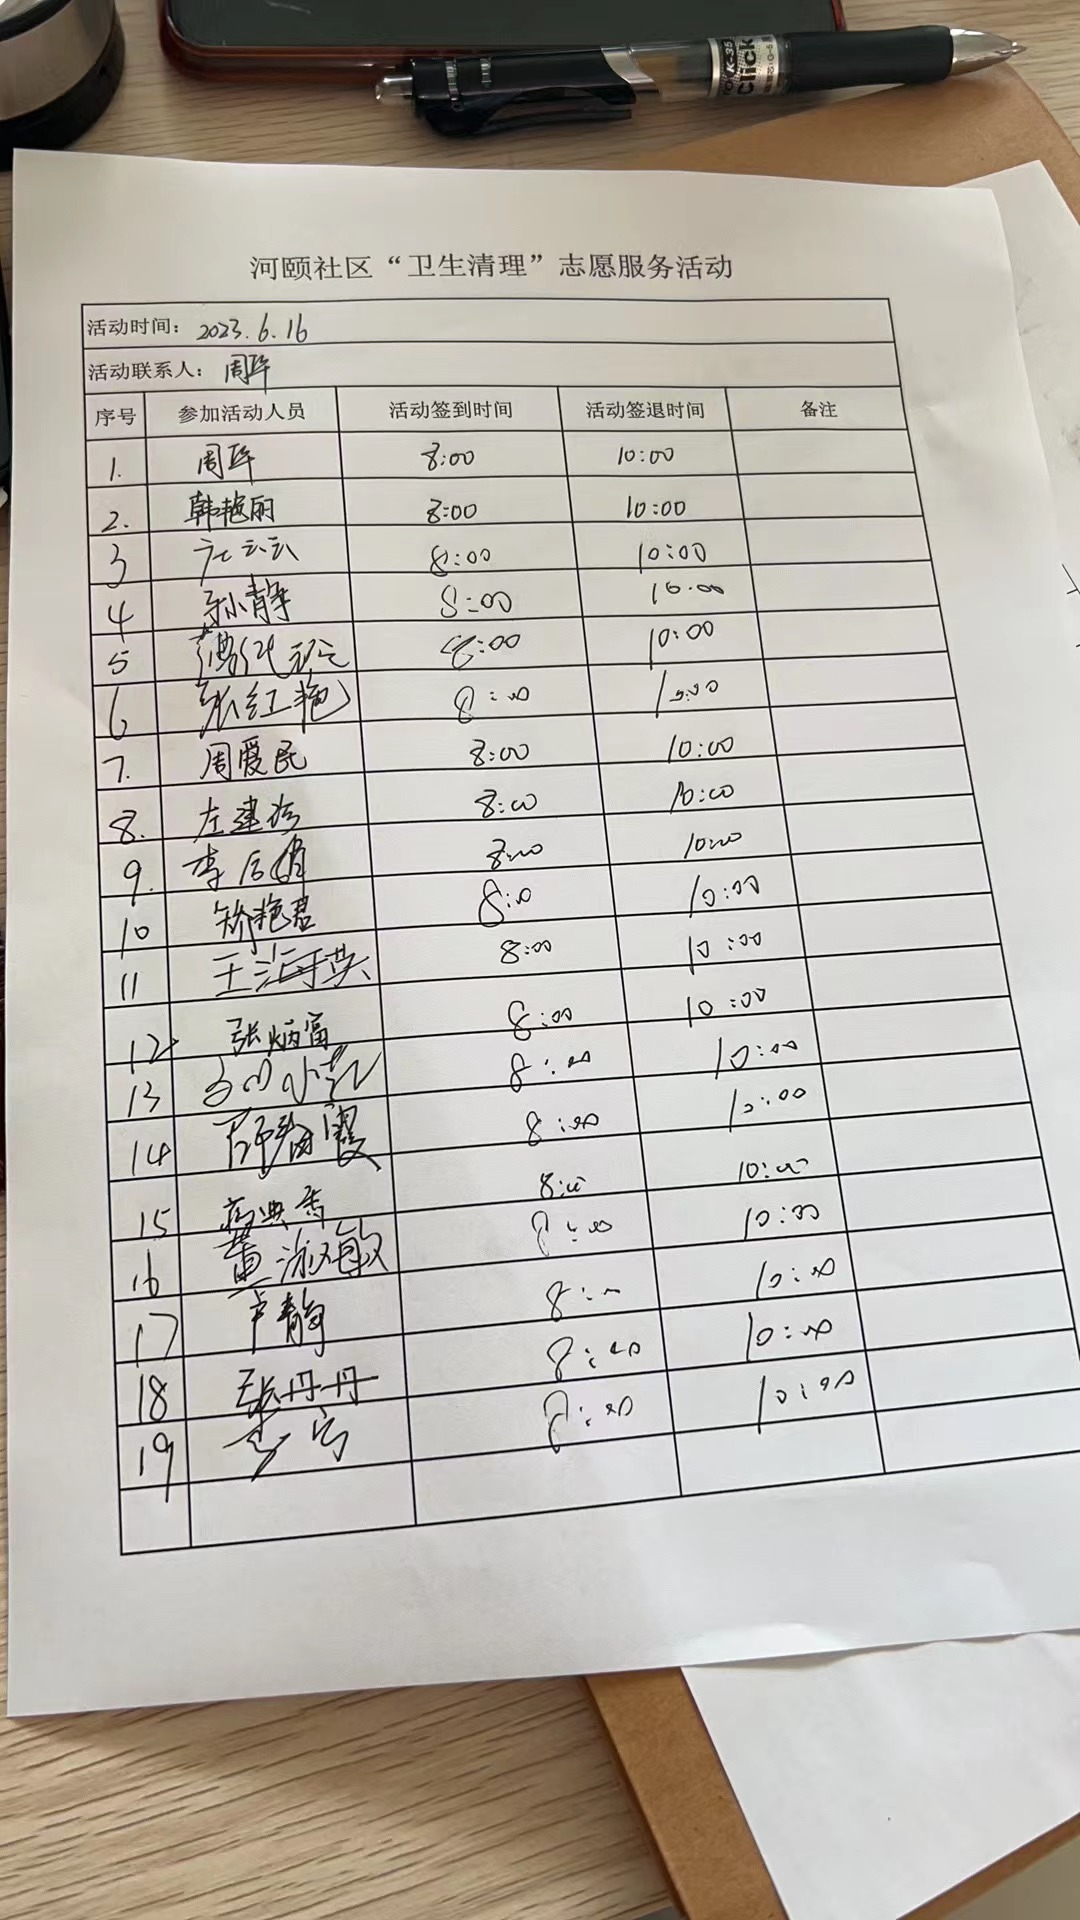 K-35
Click
河颐社区“卫生清理”志愿服务活动
活动时间： 2023.6.16
活动联系人：周
序号 参加活动人员 活动签到时间 活动签退时间 备注
1. 周 8:00 10:00
2. 韩艳丽 8:00 10:00
3 云云 8:00 10:00
4 孙小静 8:00 10:00
5 8:00 10:00
6 张红艳 8:00 10:00
7. 周爱民 8:00 10:00
8. 左建 8:00 10:00
9. 李 8:00 10:00
10 矫艳君 8:00 10:00
11 王海英 8:00 10:00
12 张炳富 8:00 10:00
13 8:00 10:00
14 薛 霞 8:00 10:00
15 8:00 10:00
16 董淑敏 8:00 10:00
17 卢静 8:00 10:00
18 张丹丹 8:00 10:00
19 李 8:00 10:00